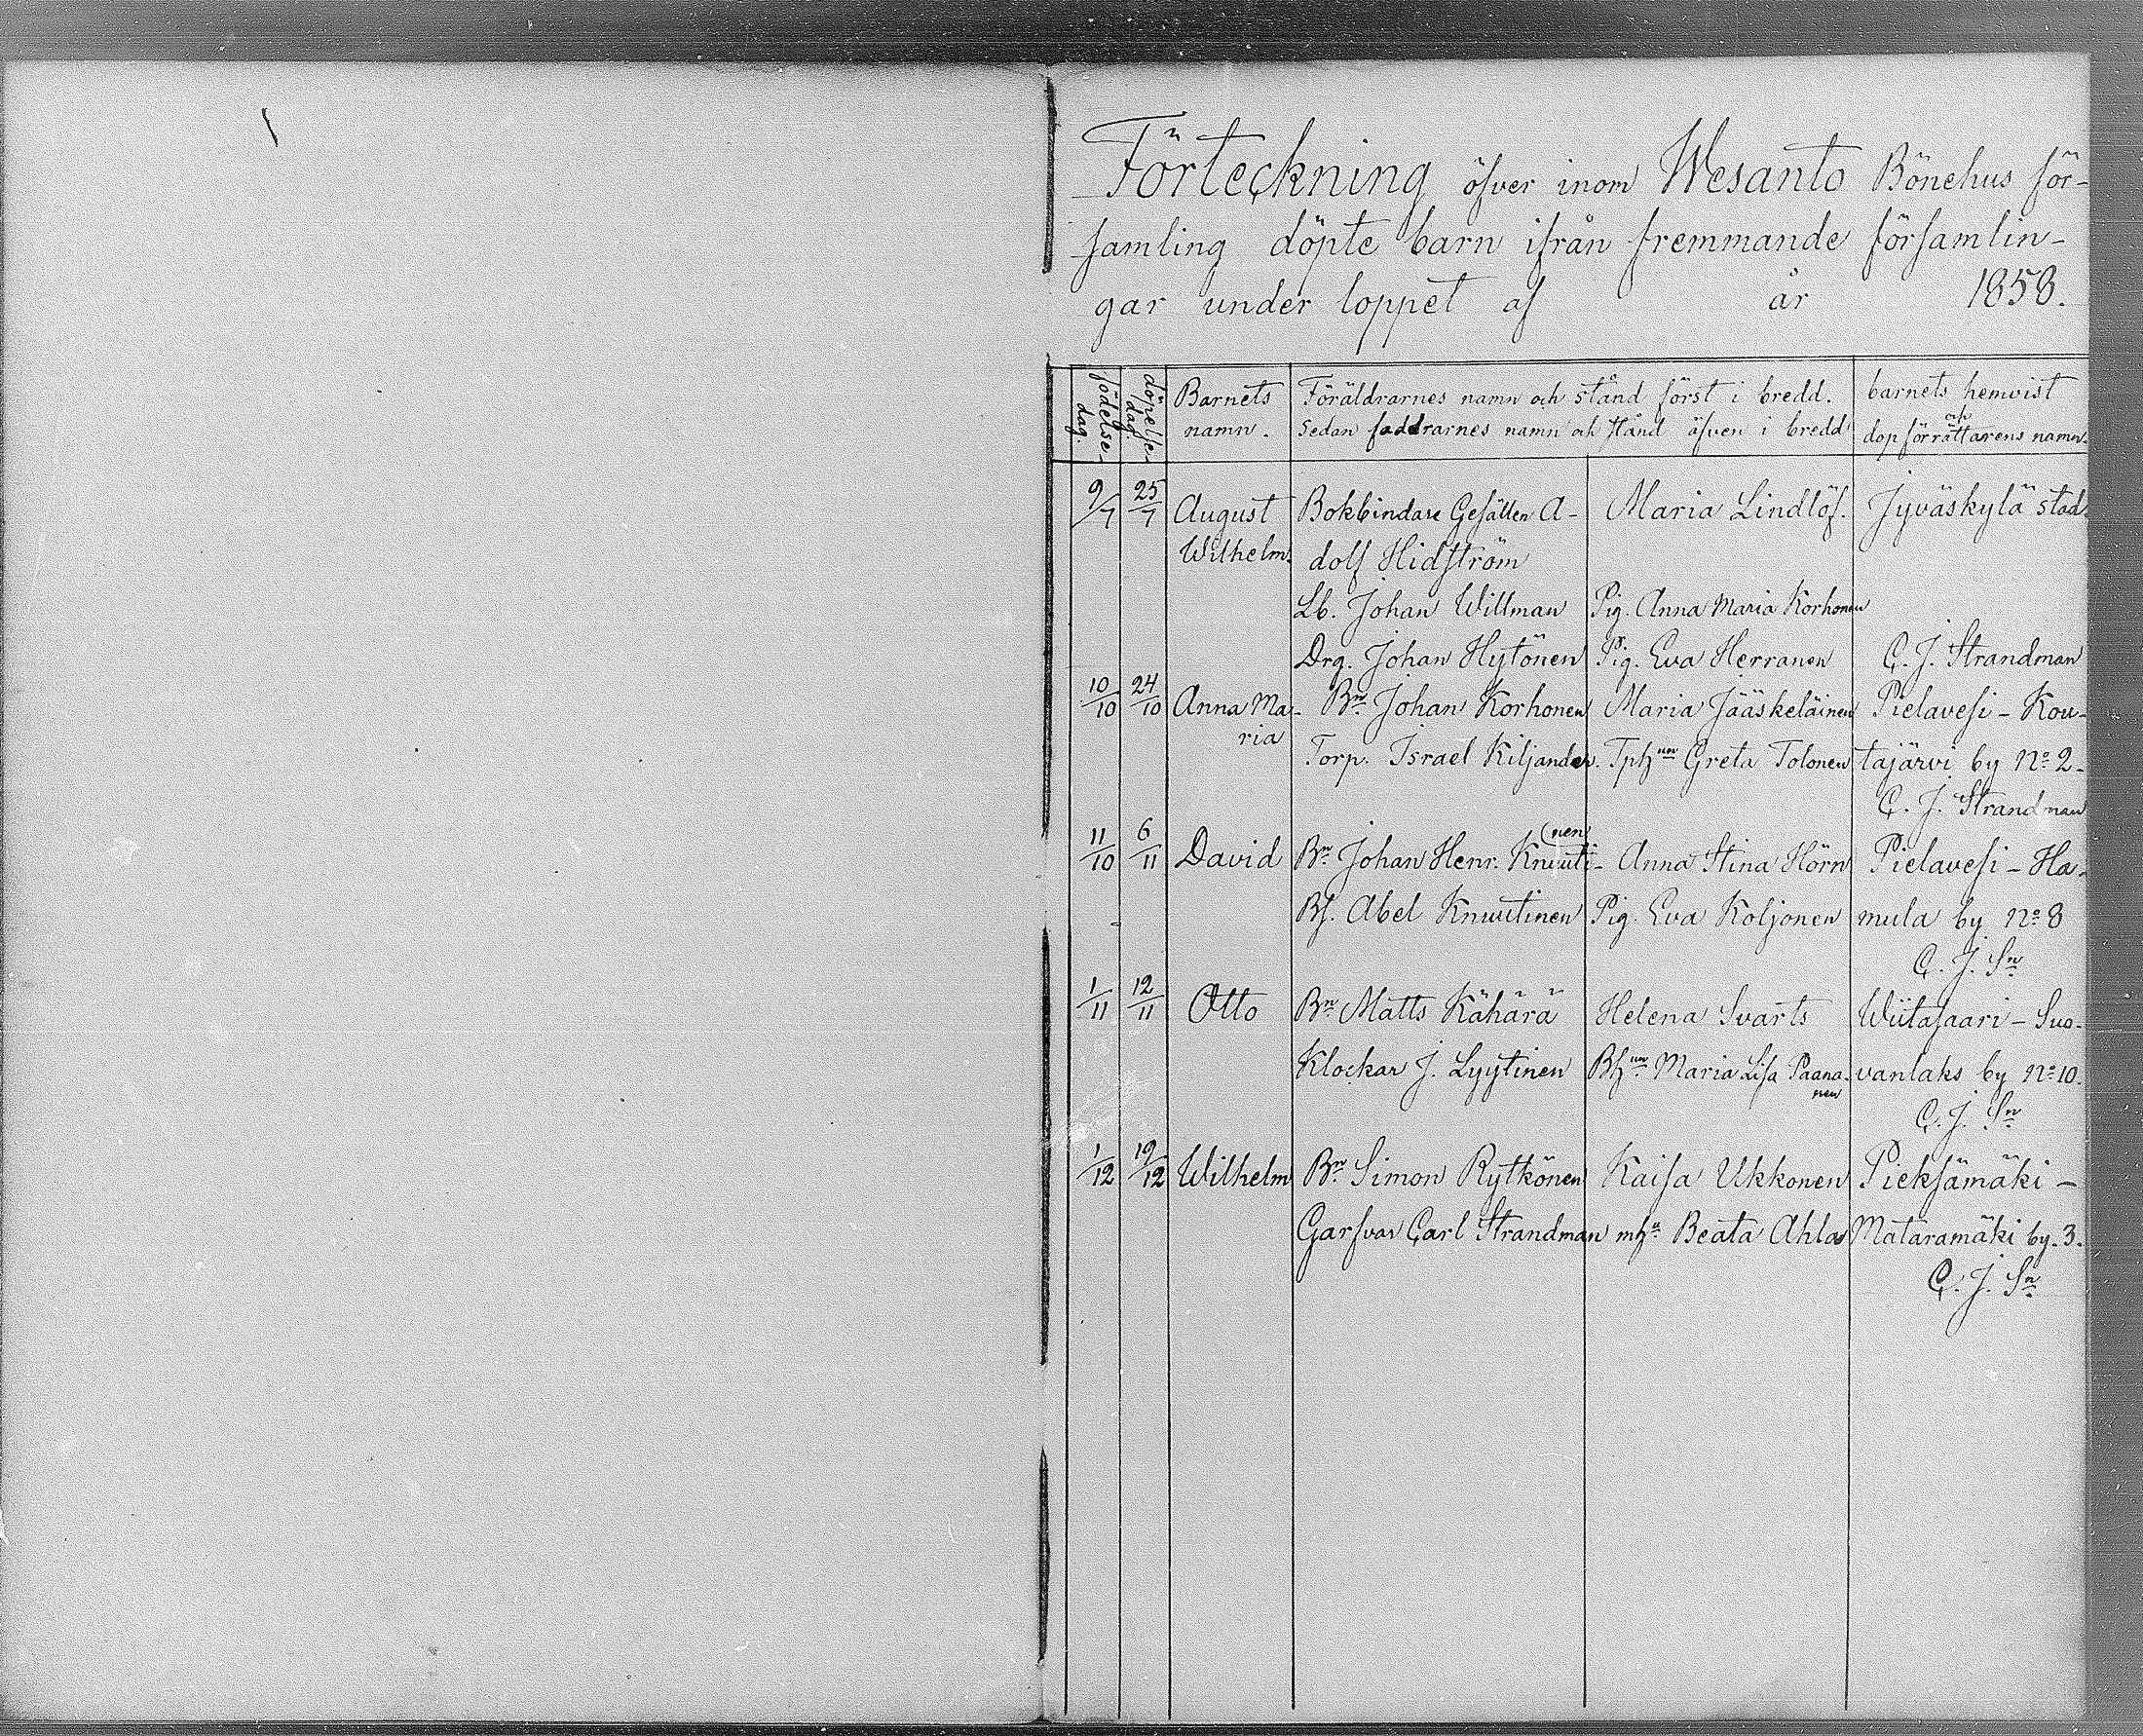 Förteckning öfver inom Wesanto Bönehus för-
samling döpte barn ifrån fremmande församlin-
gar under loppet af år 1858.
födelse-
dag.
döpelse-
dag.
Barnets
namn.
Föräldrarnes namn och stånd först i bredd.
sedan faddrarnes namn och stånd äfven i bredd
barnets hemvist
och
dopförrättarens namn.
9/7 25/7 August Bokbindare Gesällen A- Maria Lindlöf. Jyväskylä stad.
Wilhelm. dolf Hidström
Lb. Johan Willman Pig. Anna Maria Korhonen
Drg. Johan Hytönen Pig. Eva Herranen C. J. Strandman
10/10 24/10 Anna Ma- Bn. Johan Korhonen Maria Jääskeläinen Pielavesi - Kou-
ria Torp. Israel Kiljander. Tphun Greta Tolonen tajärvi by No 2.
C. J. Strandman
(nen
11/10 6/11 David Bn Johan Henr. Knuuti- Anna Stina Hörn Pielavesi - Ha-
Bs. Abel Knuutinen Pig. Eva Koljonen mula by No 8
C. J. Sn
1/11 12/11 Otto Bn Matts Kähärä Helena Svarts Wiitasaari - Suo-
Klockar J. Lyytinen Bhun Maria Lisa Paana- vanlaks by No 10.
nen
C. J. Sn
1/12 19/12 Wilhelm Bn. Simon Rytkönen Kaisa Ukkonen Pieksämäki -
Garfvar Carl Strandman mhu Beata Ahla Mataramäki by. 3.
C. J. Sn